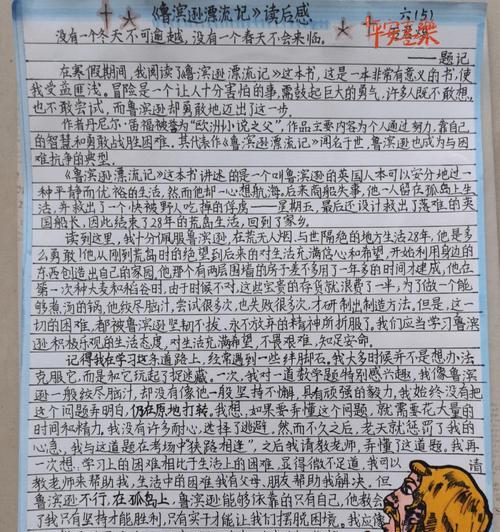 《鲁滨逊漂流记》读后感
六(5)
平安喜乐
没有一个冬天不可逾越,没有一个春天不会来临。
——题记
在寒假期间,我阅读了鲁滨逊漂流记》这本书,这是一本非常有意义的书,使
我受益匪浅。冒险是一个让人十分害怕的事,需鼓起巨大的勇气,许多人既不敢想,
也不敢尝试,而鲁滨逊却勇敢地迈出了这一步。
作者丹尼尔·笛福被誉为"欧洲小说之父",作品主要内容为个人通过努力,靠自己
的智慧和勇敢战胜困难。其代表作《鲁滨逊漂流记》闻名于世,鲁滨逊也成为与困
难抗争的典型。
《鲁滨逊漂流记》这本书讲述的是一个叫鲁滨逊的英国人本可以安分地过一
种平静而优裕的生活,然而他却一心想航海,后来商船失事,他一人留在孤岛上生
活,并救出了一个快被野人吃掉的俘虏——星期五,最后还设计救出了落难的英
国船长,因此结束了28年的荒岛生活,回到了家乡。
读到这里,我十分佩服鲁滨逊,在荒无人烟,与世隔绝的地方生活28年,他是多
么勇敢!他从刚到荒岛时的绝望到后来的对生活充满信心和希望,开始利用身边的
东西创造出自己的家园,他那个有两层围墙的房子差不多用了一年多的时间才建成,他在
第一次种大麦和稻谷时,由于时候不对,这些宝贵的存货就浪费了一半,为了做一个能
够煮汤的锅,他绞尽脑汁,尝试很多次,也失败很多次,才研制出制造方法。但是,这一
切的困难,都被鲁滨逊坚韧不拔,永不放弃的精神所折服了。我们应当学习鲁滨
逊积极乐观的生活态度,对生活充满希望,不畏艰难,知足安命。
记得我在学习这条道路上,经常遇到一些绊脚石。我大多时候并不是想办法
克服它,而是和它玩起了捉迷藏。一次,我对一道数学题特别感兴趣,我像鲁滨
逊一般绞尽脑汁,却没有像他一般坚持不懈,具有顽强的毅力,我始终没有把
这个问题弄明白,仍在原地打转。我想,如果要弄懂这个问题,就需要花大量的
时间和精力,我没有许多耐心,选择了逃避。然而,不久之后,老天就惩罚了我的
心急,我与这道题在考场中"狭路相逢",之后我请教老师,弄懂了这道题。我再
一次想,学习上的困难相比于生活上的困难,显得微不足道,我可以
请
教老师来帮助我,生活中的困难我有父母,朋友帮助我解决,但
鲁滨逊不行,在孤岛上,鲁滨逊能够依靠的只有自己,他教会
了我只有坚持才能胜利,只有实干才能让我们摆脱困境,我应像